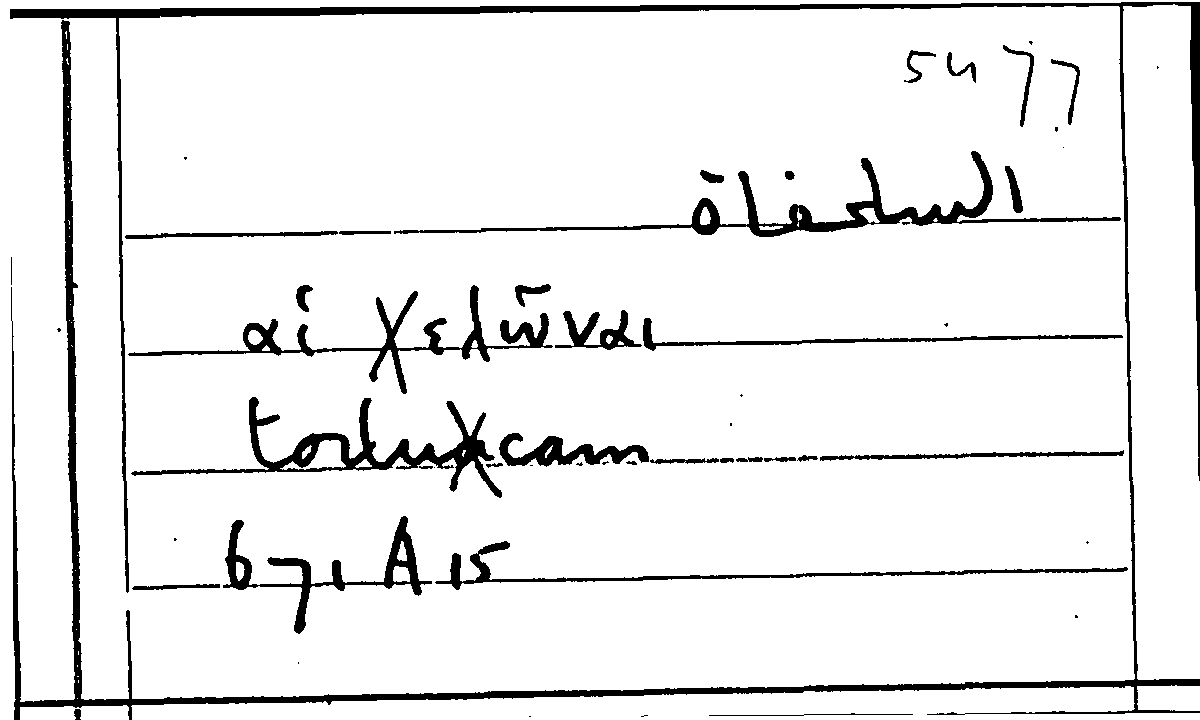 5477
السلحفاة
αἱ χελῶναι
tortucam
671 A 15